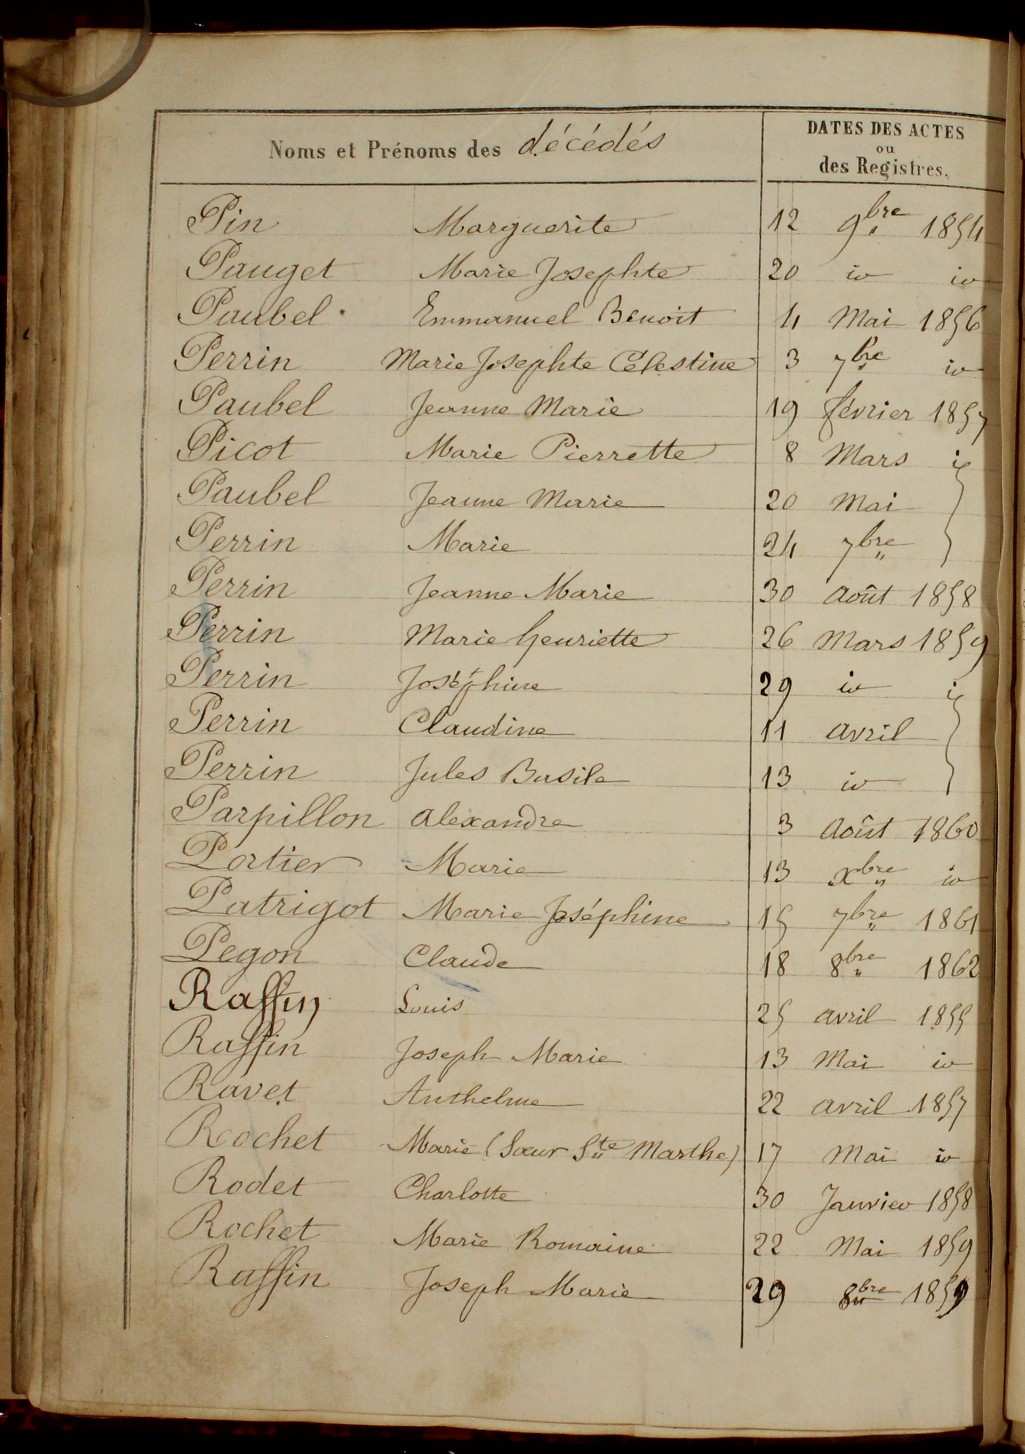 Noms et Prénoms des décédés DATES DES ACTES
ou
des Registres.
Pin Marguerite 12 9bre 1854
Pauget Marie Josephte 20 id id
Paubel Emmanuel Benoit 4 Mai 1856
Perrin Marie Josephte Célestine 3 7bre id
Paubel Jeanne Marie 19 février 1857
Picot Marie Pierrette 8 Mars id
Paubel Jeanne Marie 20 Mai
Perrin Marie 24 7bre
Perrin Jeanne Marie 30 Août 1858
Perrin Marie henriette 26 Mars 1859
Perrin Joséphine 29 id id
Perrin Claudine 11 avril
Perrin Jules Basile 13 id
Parpillon alexandre 3 Août 1860
Portier Marie 13 Xbre id
Patrigot Marie Joséphine 15 7bre 1861
Pegon Claude 18 8bre 1862
Raffin Louis 25 avril 1855
Raffin Joseph Marie 13 Mai id
Ravet Anthelme 22 avril 1857
Rochet Marie (Sœur Ste Marthe) 17 Mai id
Rodet Charlotte 30 Janvier 1858
Rochet Marie Romaine 22 Mai 1859
Raffin Joseph Marie 29 8bre 1859